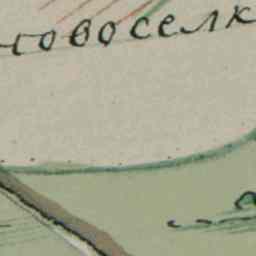 новоселк